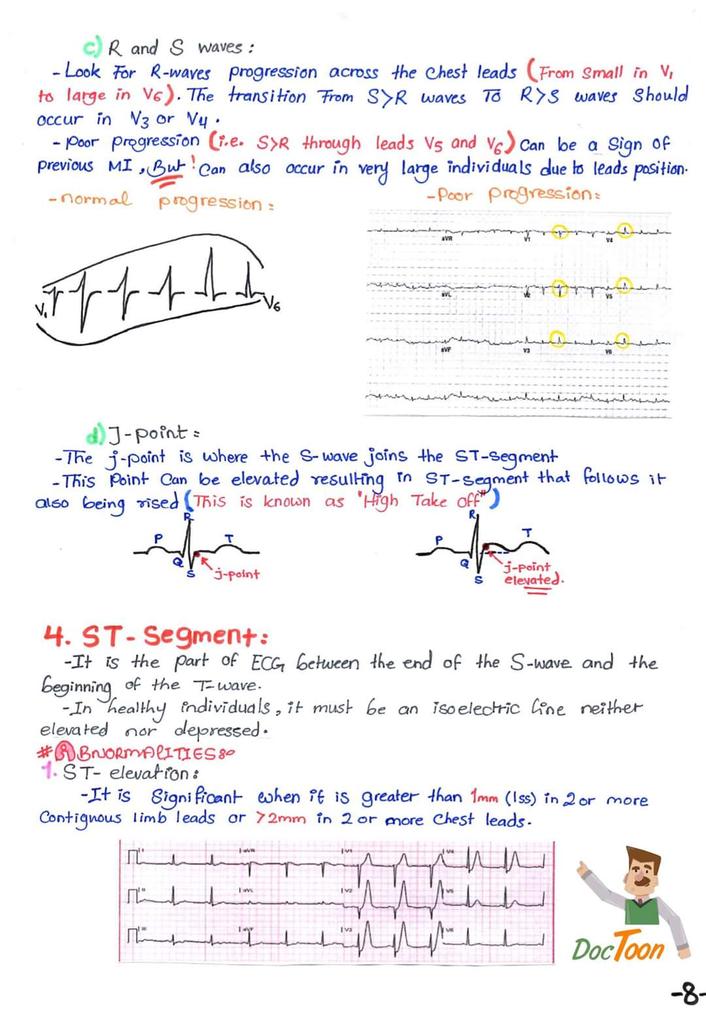 c) R and S waves:
- Look For R-waves progression across the Chest leads (From Small in V1
to large in V6). The transition From S>R waves To R>S waves Should
occur in V3 or V4.
- Poor progression (i.e. S>R through leads V5 and V6) Can be a Sign of
previous MI, But! Can also occur in very large individuals due to leads position.
- normal progression:
- Poor progression:
V1
V6
aVR V1 V4
aVL V2 V5
aVF V3 V6
d) J-point:
- The j-point is where the S-wave joins the ST-segment
- This Point Can be elevated resulting in ST-segment that follows it
also being rised (This is known as "High Take off")
R
P T
Q
S
j-point
R
P T
Q
S
j-point
elevated.
4. ST-Segment:
- It is the part of ECG between the end of the S-wave and the
beginning of the T-wave.
- In healthy individuals, it must be an isoelectric line neither
elevated nor depressed.
# ABNORMALITIES:
1. ST-elevation:
- It is Significant when it is greater than 1mm (1ss) in 2 or more
Contignous limb leads or >2mm in 2 or more Chest leads.
I aVR V1 V4
II aVL V2 V5
III aVF V3 V6
DocToon
-8-